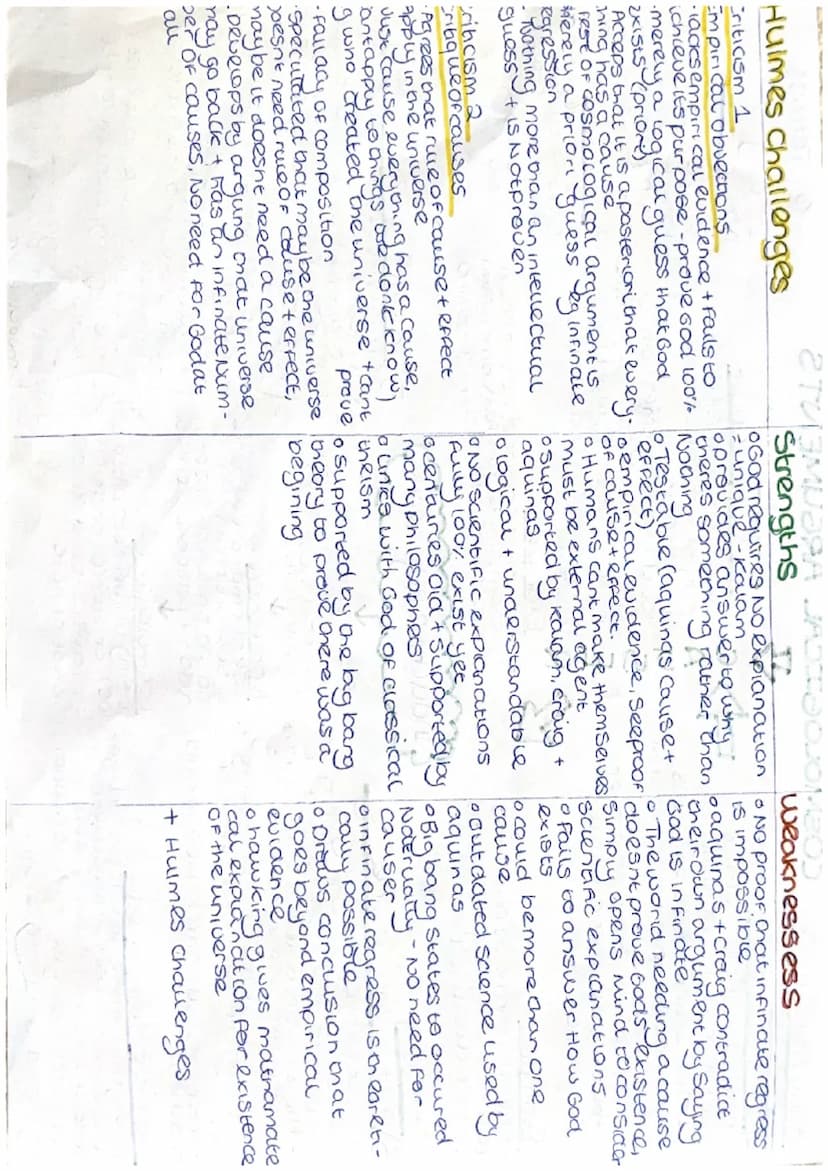 Hulmes Challenges
criticism 1
Empirical objections
- lacks empirical evidence + fails to
achieve its purpose - prove God 100%
- merely a logical guess that God
exists (priori)
- Accepts that it is a posteriori that every-
thing has a cause
- rest of cosmological argument is
merely a priori guess eg infinate
regression
- Nothing more than an intellectual
guess + is Not proven
criticism 2
critique of causes
- Agrees that rule of cause + effect
apply in the universe
- Just cause everything has a cause,
cant apply to things we dont know,
eg who created the universe + cant
prove
- fallacy of composition
- speculated that maybe the universe
doesnt need rule of cause + effect,
maybe it doesnt need a cause
- Develops by arguing that universe
may go back + has an infinate num-
ber of causes, No need for God at
all
Strengths
o God requires No explanation
= unique - Kalam
o provides answer to why
theres something rather than
Nothing
o Testable (aquinas cause +
effect)
o empirical evidence, see proof
of cause + effect.
o Humans cant make themselves
must be external agent
o supported by Kalam, craig +
aquinas
o logical + understandable
o No scientific explanations
fully 100% exist yet
o centuries old + supported by
many philosophers
o Links with God of classical
theism
o supported by the big bang
theory to prove there was a
begining
Weaknessess
o No proof that infinate regress
is impossible
o aquinas + Craig contradict
their own argument by saying
God is infinate
o The world needing a cause
doesnt prove Gods existence,
simply opens mind to consider
scientific explanations
o Fails to answer How God
exists
o could be more than one
cause
o outdated science used by
aquinas
o Big bang states to occured
Naturually - No need for
causer
o infinate regress is theoreti-
cally possible
o Draws conclusion that
goes beyond empirical
evidence
o hawking gives mathamate
cal explanation for existence
of the universe
+ Hulmes challenges